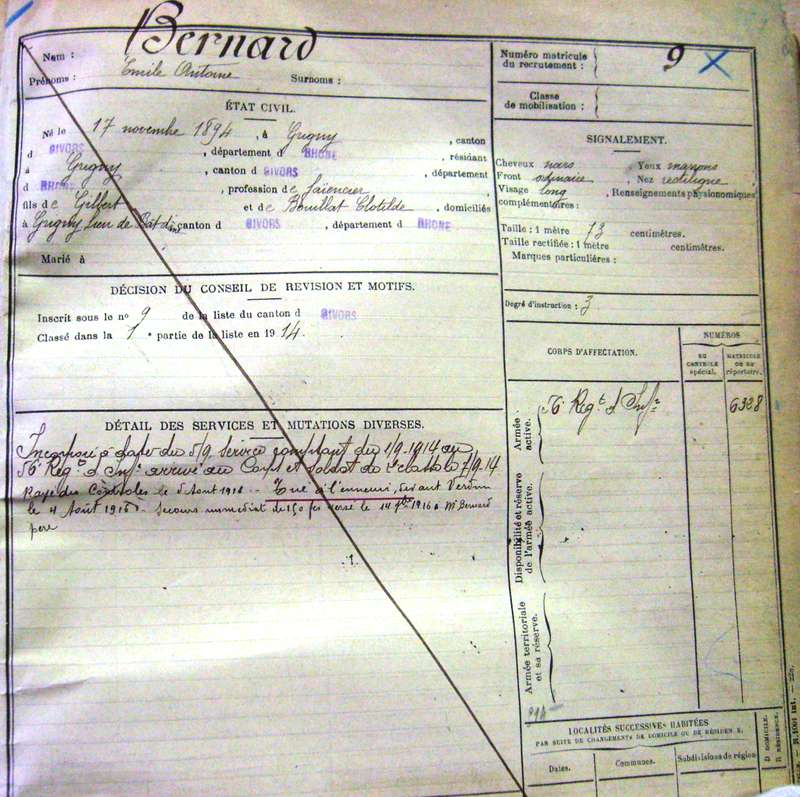 Nom : Bernard
Prénoms : Emile Antoine Surnoms :
ÉTAT CIVIL.
Né le 17 novembre 1894, à Grigny, canton
d GIVORS, département d RHONE, résidant
à Grigny, canton d GIVORS, département
d RHONE, profession de faïencier
fils de Gilbert et de Bouillat Clotilde, domiciliés
à Grigny lieu de canton d GIVORS, département d RHONE
Marié à
DÉCISION DU CONSEIL DE REVISION ET MOTIFS.
Inscrit sous le nº 9 de la liste du canton d GIVORS
Classé dans la 1e partie de la liste en 1914.
DÉTAIL DES SERVICES ET MUTATIONS DIVERSES.
Incorporé à dater du 5/9 Service comptant du 1/9.1914 au
56e Régt d'Infie arrivé au Corps et soldat de 2e classe le 7/9.14
Rayé des Contrôles le 5 Aout 1916 - Tué à l'ennemi, devant Verdun
le 4 Août 1916. Secours immédiat de 150 frs versé le 14 1916 à Mr Bernard
père
Numéro matricule du recrutement : 9
Classe de mobilisation :
SIGNALEMENT.
Cheveux noirs, Yeux marrons
Front ordinaire, Nez rectiligne
Visage long, Renseignements physionomiques
complémentaires :
Taille : 1 mètre 73 centimètres.
Taille rectifiée : 1 mètre centimètres.
Marques particulières :
Degré d'instruction : 3
CORPS D'AFFECTATION.
NUMÉROS
AU CONTRÔLE spécial.
MATRICULE OU AU répertoire.
Armée active.
56e Régt d'Infie 6328
Disponibilité et réserve de l'armée active.
Armée territoriale et sa réserve.
LOCALITÉS SUCCESSIVES HABITÉES
PAR SUITE DE CHANGEMENTS DE DOMICILE OU DE RÉSIDENCE.
Dates. Communes. Subdivisions de région
D DOMICILE.
R RÉSIDENCE.